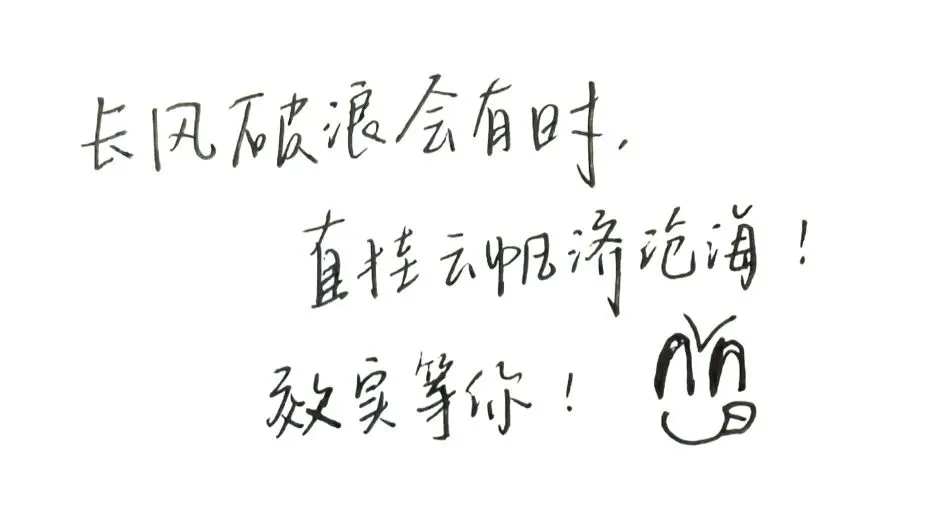 长风破浪会有时,
直挂云帆济沧海!
效实等你!